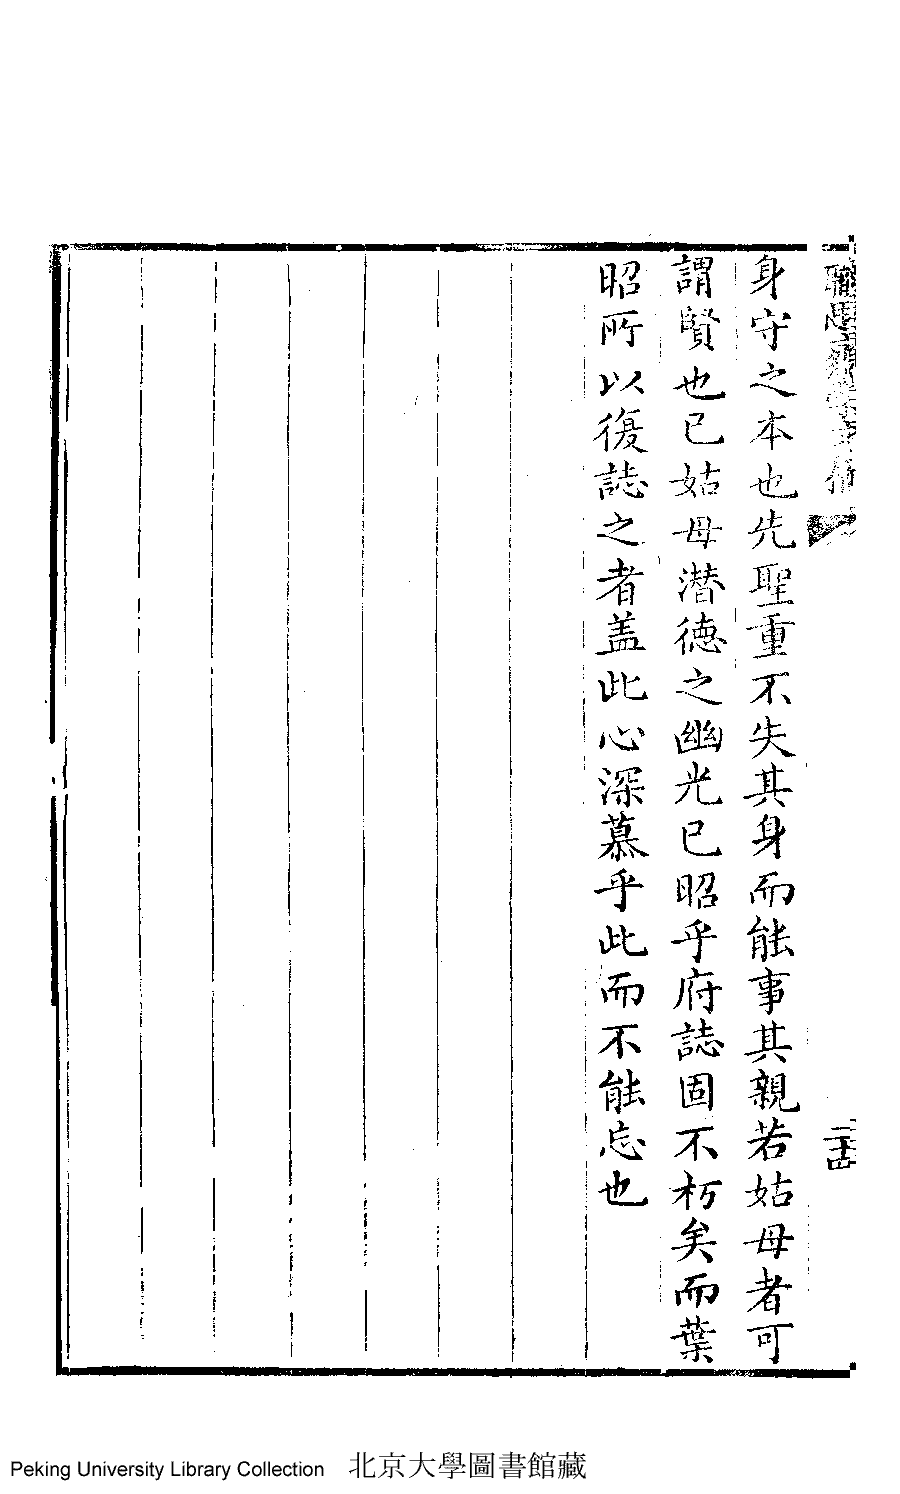 身守之本也先聖重不失其身而能事其親若姑母者可
謂賢也已姑母潛德之幽光已昭乎府誌固不朽矣而葉
昭所以復誌之者盖此心深慕乎此而不能忘也
二十四
Peking University Library Collection 北京大學圖書館藏